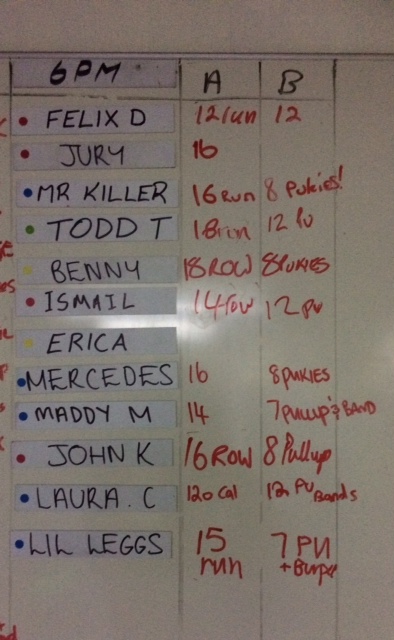 6PM A B
FELIX D 12/run 12
JURY 16
MR KILLER 16 Run 8 Pukies!
TODD T 18run 12 PU
BENNY 18 ROW 8 PUKIES
ISMAIL 14 row 12 PU
ERICA
MERCEDES 16 8 PUKIES
MADDY M 14 7 pullup's BAND
JOHN K 16 ROW 8 Pullup
LAURA. C 120 Cal 12 PU Bands
LIL LEGGS 15 7 PU
run + Burpe